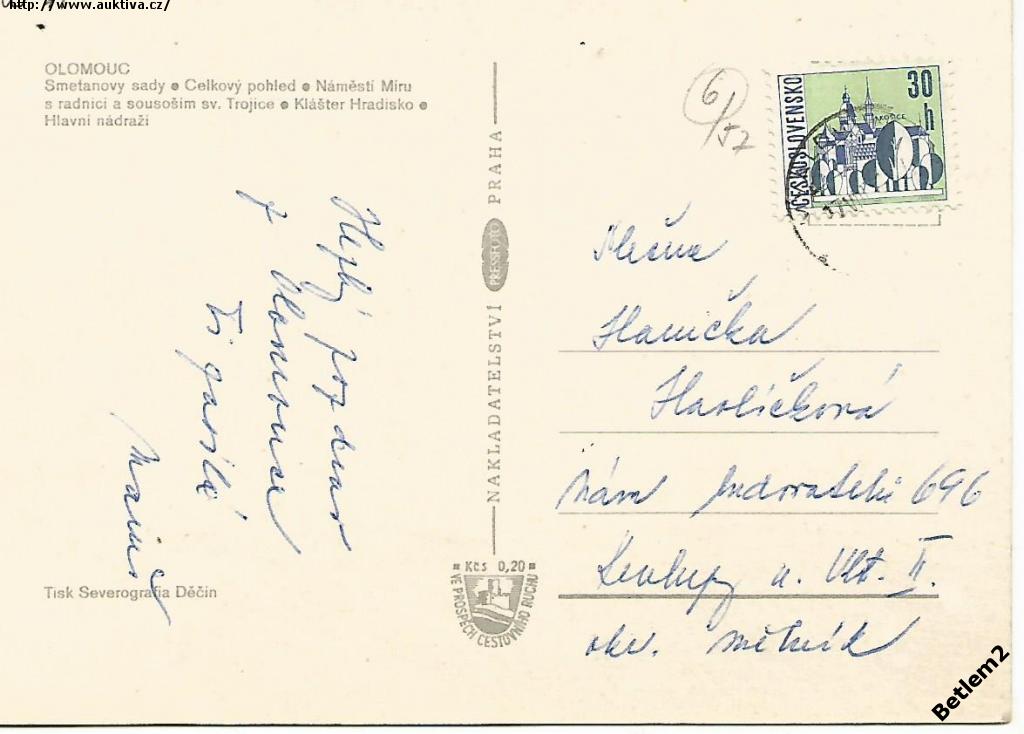 http://www.auktiva.cz/
OLOMOUC
Smetanovy sady ● Celkový pohled ● Náměstí Míru
s radnicí a sousoším sv. Trojice ● Klášter Hradisko ●
Hlavní nádraží
Hezký pozdrav
z Olomouce
Ti posílá
Tisk Severografia Děčín
NAKLADATELSTVÍ PRESSFOTO PRAHA
Kčs 0,20
VE PROSPĚCH CESTOVNÍHO RUCHU
6/52
ČESKOSLOVENSKO
30 h
KOŠICE
Slečna
Hanička
Havlíčková
nám 696
Kralupy n. Vlt. II.
okr. Mělník
Betlem2